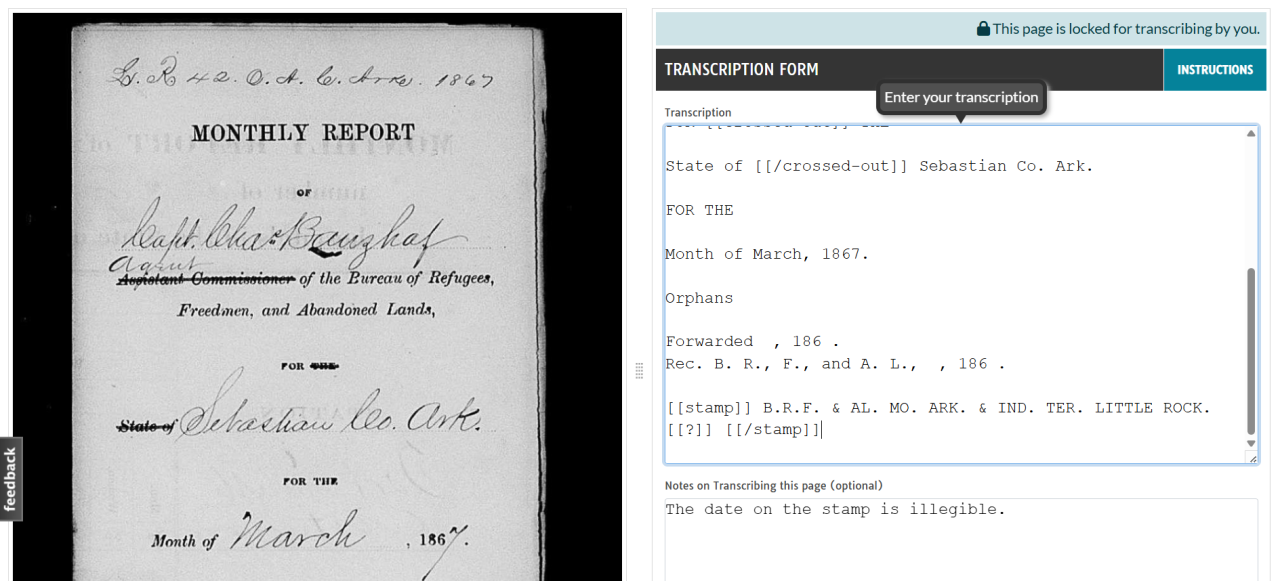 L. R 42. O. A. C. Ark. 1867
MONTHLY REPORT
OF
Capt. Chas Banzhaf
Agent
Assistant Commissioner of the Bureau of Refugees,
Freedmen, and Abandoned Lands,
FOR THE
State of Sebastian Co. Ark.
FOR THE
Month of March, 1867.
feedback
This page is locked for transcribing by you.
TRANSCRIPTION FORM
INSTRUCTIONS
Enter your transcription
Transcription
State of [[/crossed-out]] Sebastian Co. Ark.
FOR THE
Month of March, 1867.
Orphans
Forwarded , 186 .
Rec. B. R., F., and A. L., , 186 .
[[stamp]] B.R.F. & AL. MO. ARK. & IND. TER. LITTLE ROCK.
[[?]] [[/stamp]]
Notes on Transcribing this page (optional)
The date on the stamp is illegible.